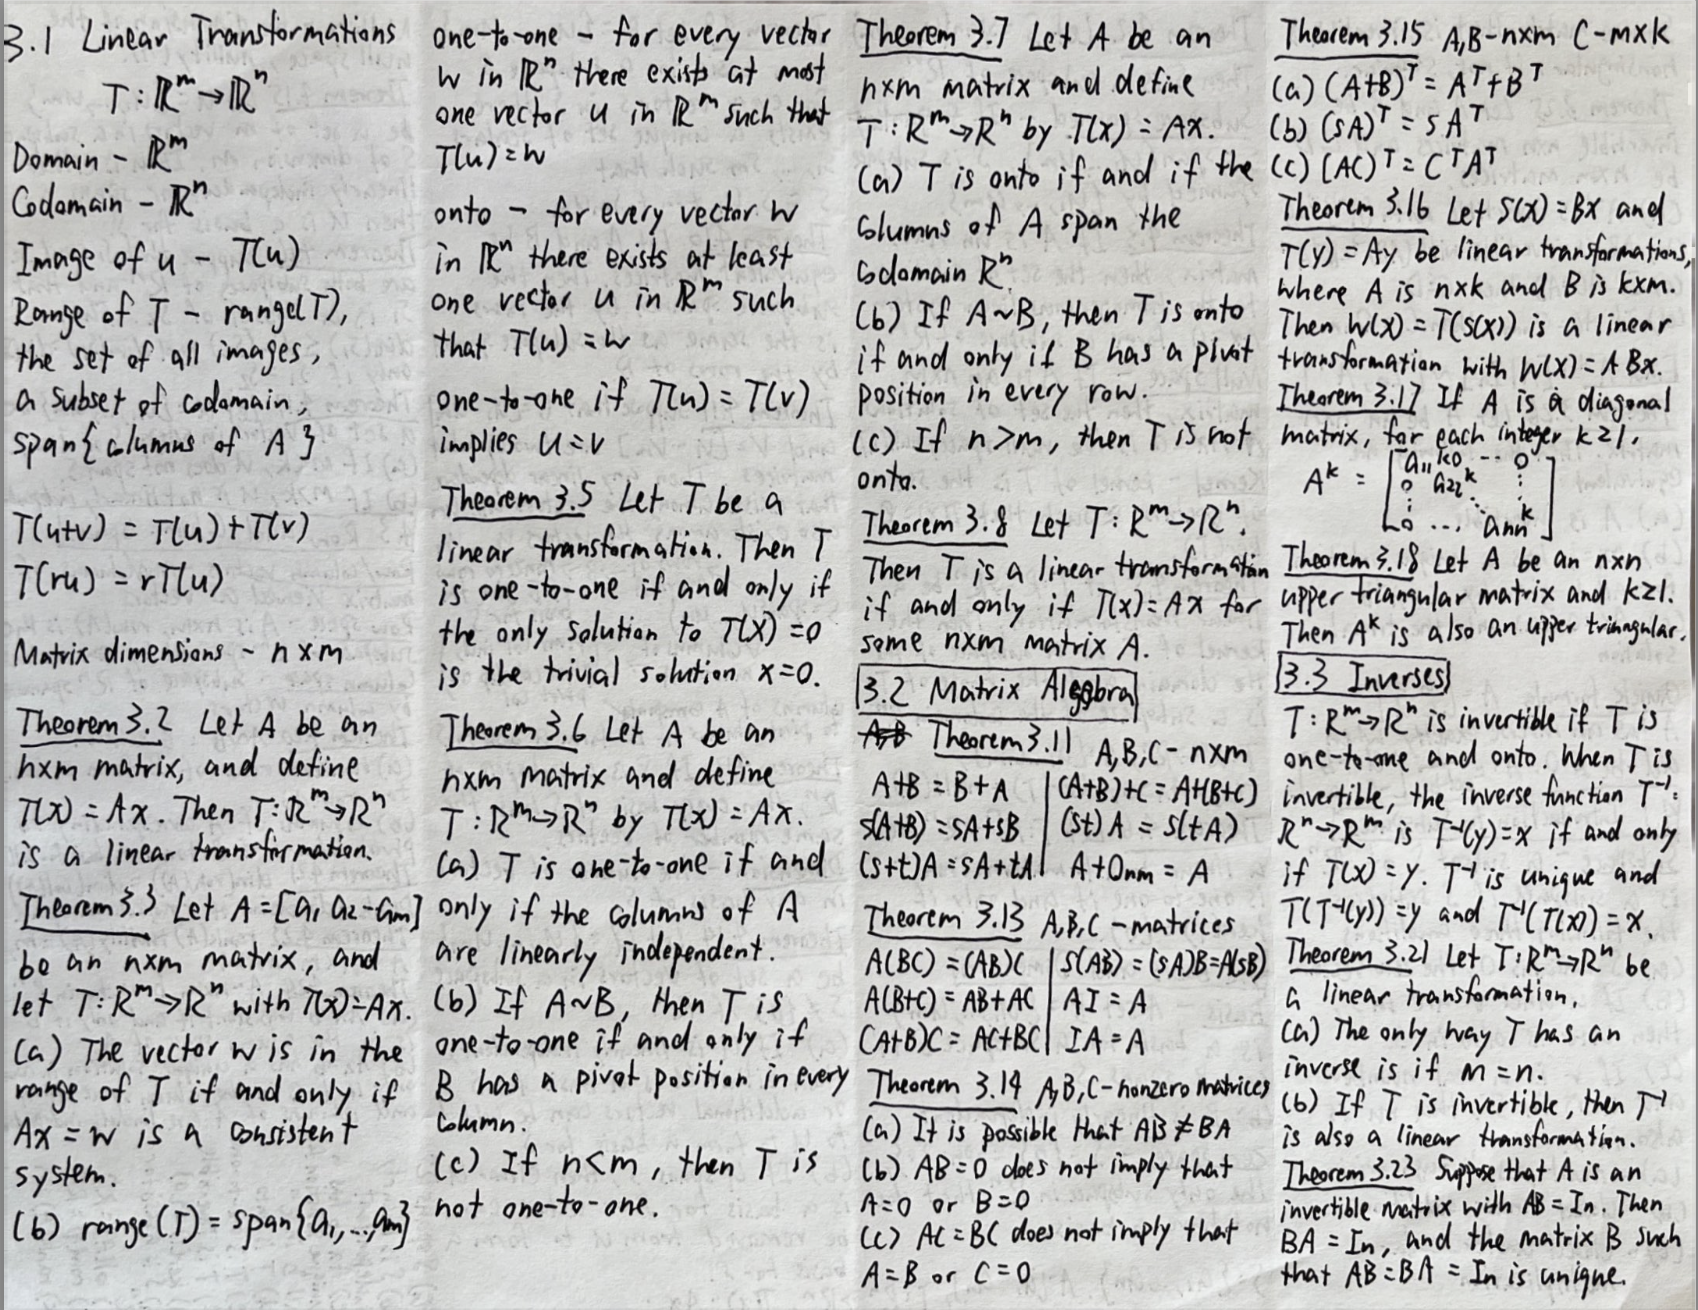 3.1 Linear Transformations
T : ℝᵐ → ℝⁿ
Domain - ℝᵐ
Codomain - ℝⁿ
Image of u - T(u)
Range of T - range(T),
the set of all images,
a subset of codomain,
span{columns of A}
T(u+v) = T(u)+T(v)
T(ru) = rT(u)
Matrix dimensions - n×m
Theorem 3.2 Let A be an
n×m matrix, and define
T(x) = Ax. Then T: ℝᵐ→ℝⁿ
is a linear transformation.
Theorem 3.3 Let A = [a₁ a₂ - aₘ]
be an n×m matrix, and
let T: Rᵐ→Rⁿ with T(x)=Ax.
(a) The vector w is in the
range of T if and only if
Ax = w is a consistent
system.
(b) range(T) = span{a₁,...,aₘ}
one-to-one - for every vector
w in ℝⁿ there exists at most
one vector u in ℝᵐ such that
T(u) = w
onto - for every vector w
in ℝⁿ there exists at least
one vector u in ℝᵐ such
that T(u) = w
one-to-one if T(u) = T(v)
implies u=v
Theorem 3.5 Let T be a
linear transformation. Then T
is one-to-one if and only if
the only solution to T(x) = 0
is the trivial solution x=0.
Theorem 3.6 Let A be an
n×m matrix and define
T : ℝᵐ→ℝⁿ by T(x) = Ax.
(a) T is one-to-one if and
only if the columns of A
are linearly independent.
(b) If A~B, then T is
one-to-one if and only if
B has a pivot position in every
column.
(c) If n<m, then T is
not one-to-one.
Theorem 3.7 Let A be an
n×m matrix and define
T : Rᵐ→Rⁿ by T(x) = Ax.
(a) T is onto if and if the
columns of A span the
codomain Rⁿ.
(b) If A~B, then T is onto
if and only if B has a pivot
position in every row.
(c) If n>m, then T is not
onto.
Theorem 3.8 Let T: Rᵐ→Rⁿ.
Then T is a linear transformation
if and only if T(x)=Ax for
some n×m matrix A.
3.2 Matrix Algebra
Theorem 3.11 A,B,C - n×m
A+B = B+A | (A+B)+C = A+(B+C)
s(A+B) = sA+sB | (st)A = s(tA)
(s+t)A = sA+tA | A+0nm = A
Theorem 3.13 A,B,C - matrices
A(BC) = (AB)C | s(AB) = (sA)B=A(sB)
A(B+C) = AB+AC | AI = A
(A+B)C = AC+BC | IA = A
Theorem 3.14 A,B,C-nonzero matrices
(a) It is possible that AB ≠ BA
(b) AB=0 does not imply that
A=0 or B=0
(c) AC=BC does not imply that
A=B or C=0
Theorem 3.15 A,B-n×m C-m×k
(a) (A+B)ᵀ = Aᵀ+Bᵀ
(b) (sA)ᵀ = sAᵀ
(c) (AC)ᵀ = CᵀAᵀ
Theorem 3.16 Let S(x) = Bx and
T(y) = Ay be linear transformations,
where A is n×k and B is k×m.
Then W(x) = T(S(x)) is a linear
transformation with W(x) = ABx.
Theorem 3.17 If A is a diagonal
matrix, for each integer k≥1.
Aᵏ = [a₁₁ᵏ 0 ··· 0
0 a₂₂ᵏ
0 ... aₙₙᵏ]
Theorem 3.18 Let A be an n×n
upper triangular matrix and k≥1.
Then Aᵏ is also an upper triangular.
3.3 Inverses
T: Rᵐ→Rⁿ is invertible if T is
one-to-one and onto. When T is
invertible, the inverse function T⁻¹:
Rⁿ→Rᵐ is T⁻¹(y)=x if and only
if T(x) = y. T⁻¹ is unique and
T(T⁻¹(y))=y and T⁻¹(T(x)) = x.
Theorem 3.21 Let T: Rᵐ→Rⁿ be
a linear transformation.
(a) The only way T has an
inverse is if m=n.
(b) If T is invertible, then T⁻¹
is also a linear transformation.
Theorem 3.23 Suppose that A is an
invertible matrix with AB = In. Then
BA = In, and the matrix B such
that AB=BA = In is unique.